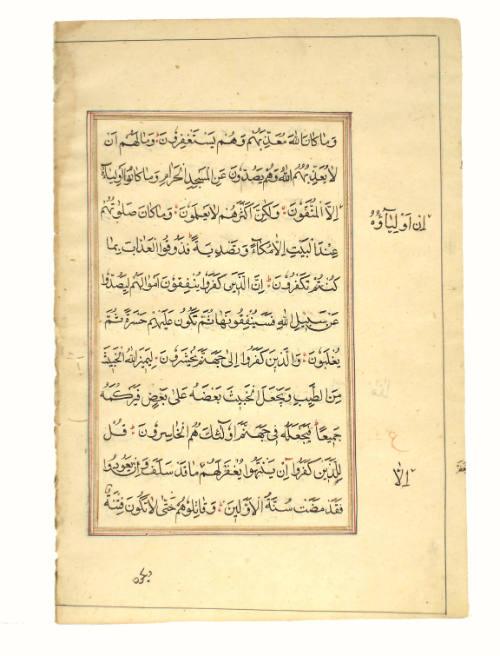 وَمَا كَانَ اللهُ مُعَذِّبَهُمْ وَهُمْ يَسْتَغْفِرُونَ وَمَا لَهُمْ اَنْ
لَا يُعَذِّبَهُمُ اللهُ وَهُمْ يَصُدُّونَ عَنِ الْمَسْجِدِ الْحَرَامِ وَمَا كَانُوا اَوْلِيَاءَهُ
اِلَّا الْمُتَّقُونَ وَلٰكِنَّ اَكْثَرَهُمْ لَا يَعْلَمُونَ وَمَا كَانَ صَلَوتُهُمْ
عِنْدَ الْبَيْتِ اِلَّا مُكَاءً وَتَصْدِيَةً فَذُوقُوا الْعَذَابَ بِمَا
كُنْتُمْ تَكْفُرُونَ اِنَّ الَّذِينَ كَفَرُوا يُنْفِقُونَ اَمْوَالَهُمْ لِيَصُدُّوا
عَنْ سَبِيلِ اللهِ فَسَيُنْفِقُونَهَا ثُمَّ تَكُونُ عَلَيْهِمْ حَسْرَةً ثُمَّ
يُغْلَبُونَ وَالَّذِينَ كَفَرُوا اِلٰى جَهَنَّمَ يُحْشَرُونَ لِيَمِيزَ اللهُ الْخَبِيثَ
مِنَ الطَّيِّبِ وَيَجْعَلَ الْخَبِيثَ بَعْضَهُ عَلٰى بَعْضٍ فَيَرْكُمَهُ
جَمِيعًا فَيَجْعَلَهُ فِي جَهَنَّمَ اُولٰئِكَ هُمُ الْخَاسِرُونَ قُلْ
لِلَّذِينَ كَفَرُوا اِنْ يَنْتَهُوا يُغْفَرْ لَهُمْ مَا قَدْ سَلَفَ وَاِنْ يَعُودُوا
فَقَدْ مَضَتْ سُنَّةُ الْاَوَّلِينَ وَقَاتِلُوهُمْ حَتّٰى لَا تَكُونَ فِتْنَةٌ
اِنْ اَوْلِيَاؤُهُ
اِلَّا
ع